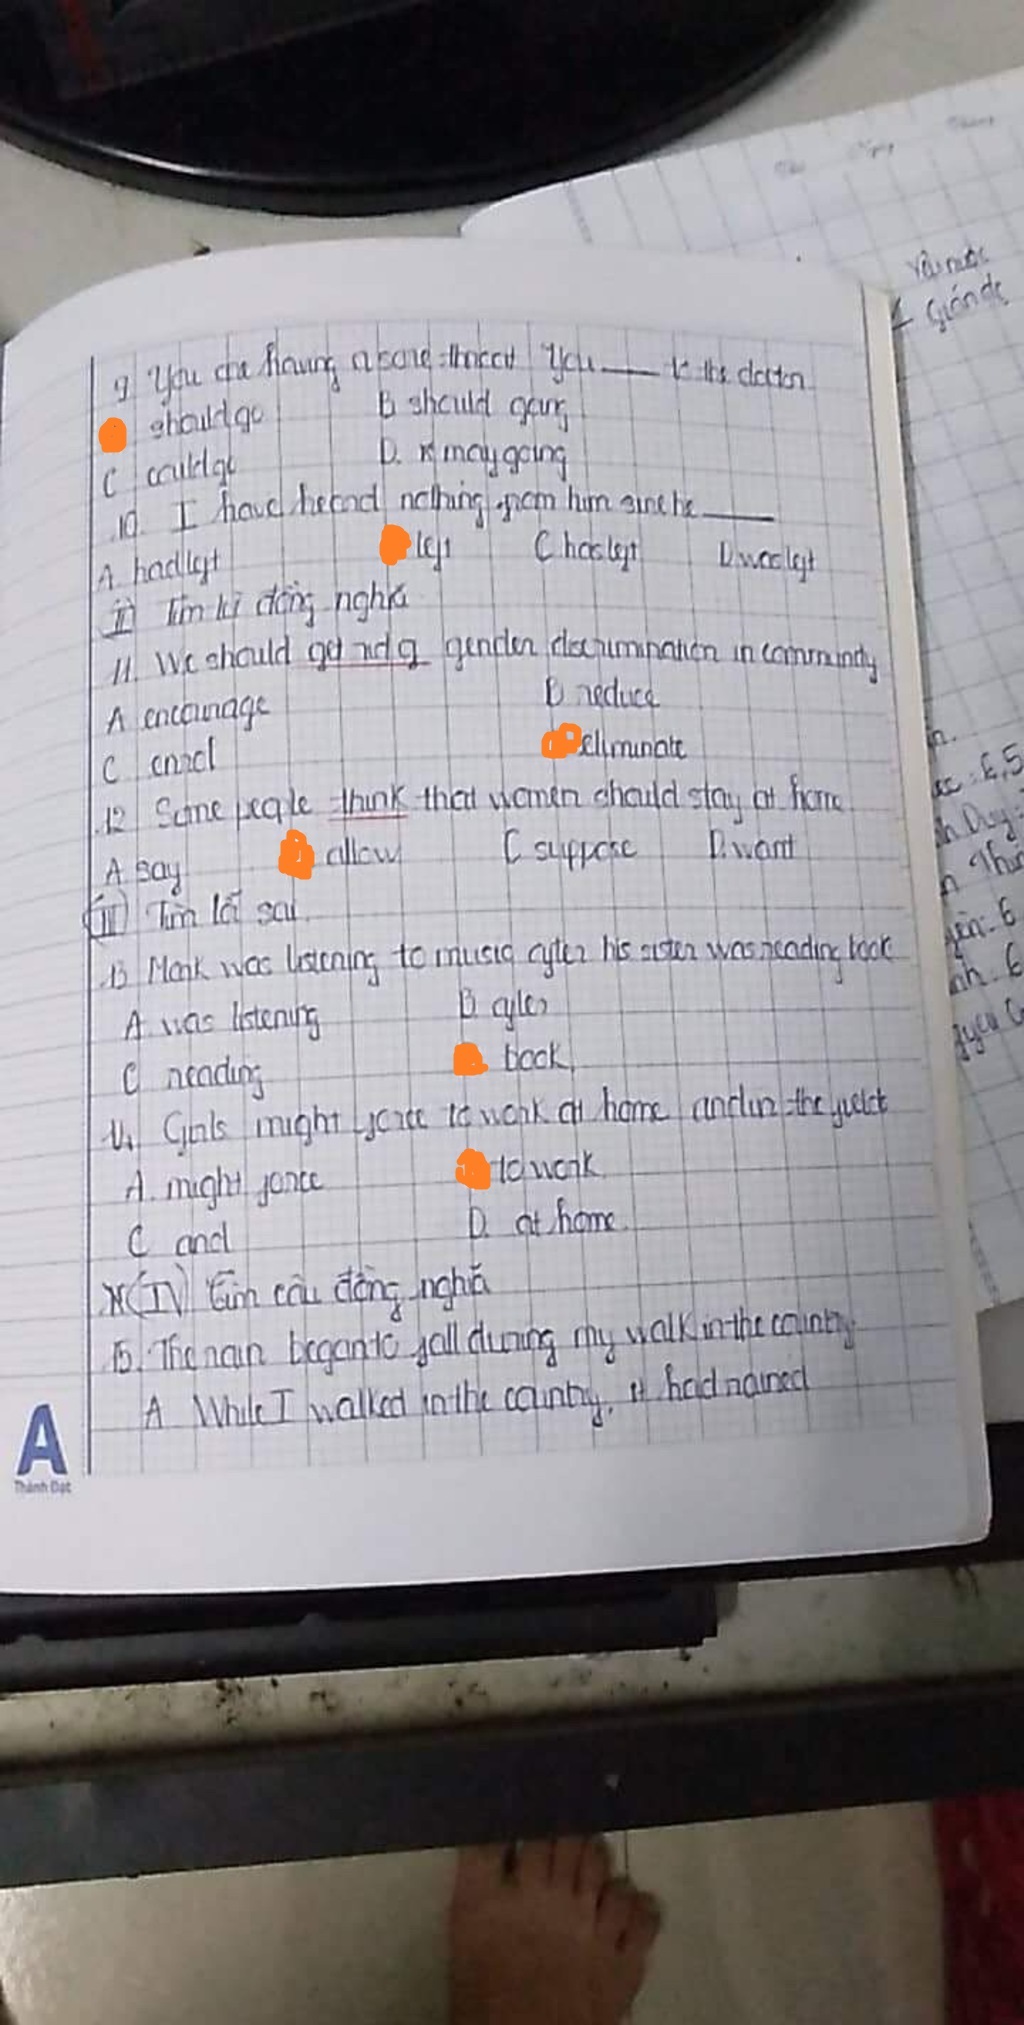 9 You are having a sore throat You ___ to the doctor
should go B should going
C could go D. may going
10. I have heard nothing from him since he ___
A. had left left C has left D was left
II) Tìm từ đồng nghĩa
11. We should get rid of gender discrimination in community
A encourage B reduce
C enrol eliminate
12 Some people think that women should stay at home
A. say allow C suppose D. want
(III) Tìm lỗi sai
13 Mark was listening to music after his sister was reading book
A was listening B after
C reading book
14 Girls might force to work at home and in the field
A. might force to work
C and D. at home
(IV) Tìm câu đồng nghĩa
15. The rain began to fall during my walk in the country
A While I walked in the country, it had rained
A
Thành Đạt